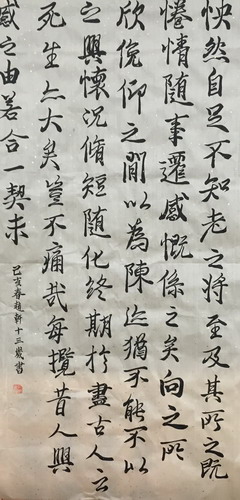 怏然自足不知老之將至及其所之既
惓情隨事遷感慨係之矣向之所
欣俛仰之閒以為陳迹猶不能不以
之興懷況脩短隨化終期於盡古人云
死生亦大矣豈不痛哉每攬昔人興
感之由若合一契未
己亥春 軒十三歲書